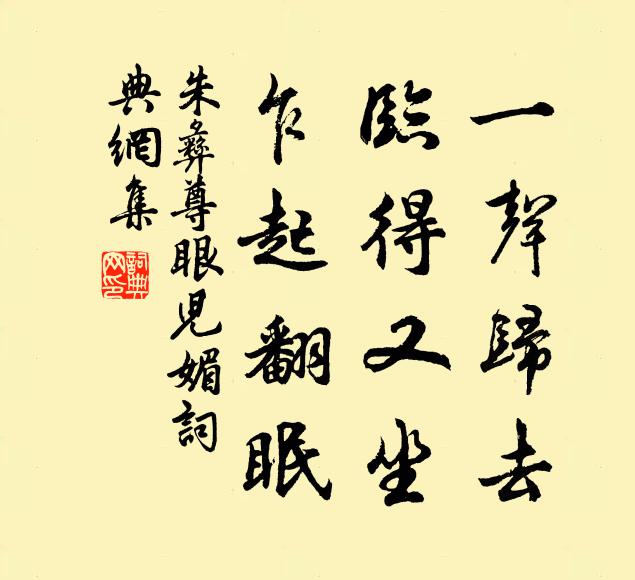 一聲歸去
臨得又坐
乍起翻眠
朱彝尊眼兒媚詞
典網集
詞典網印